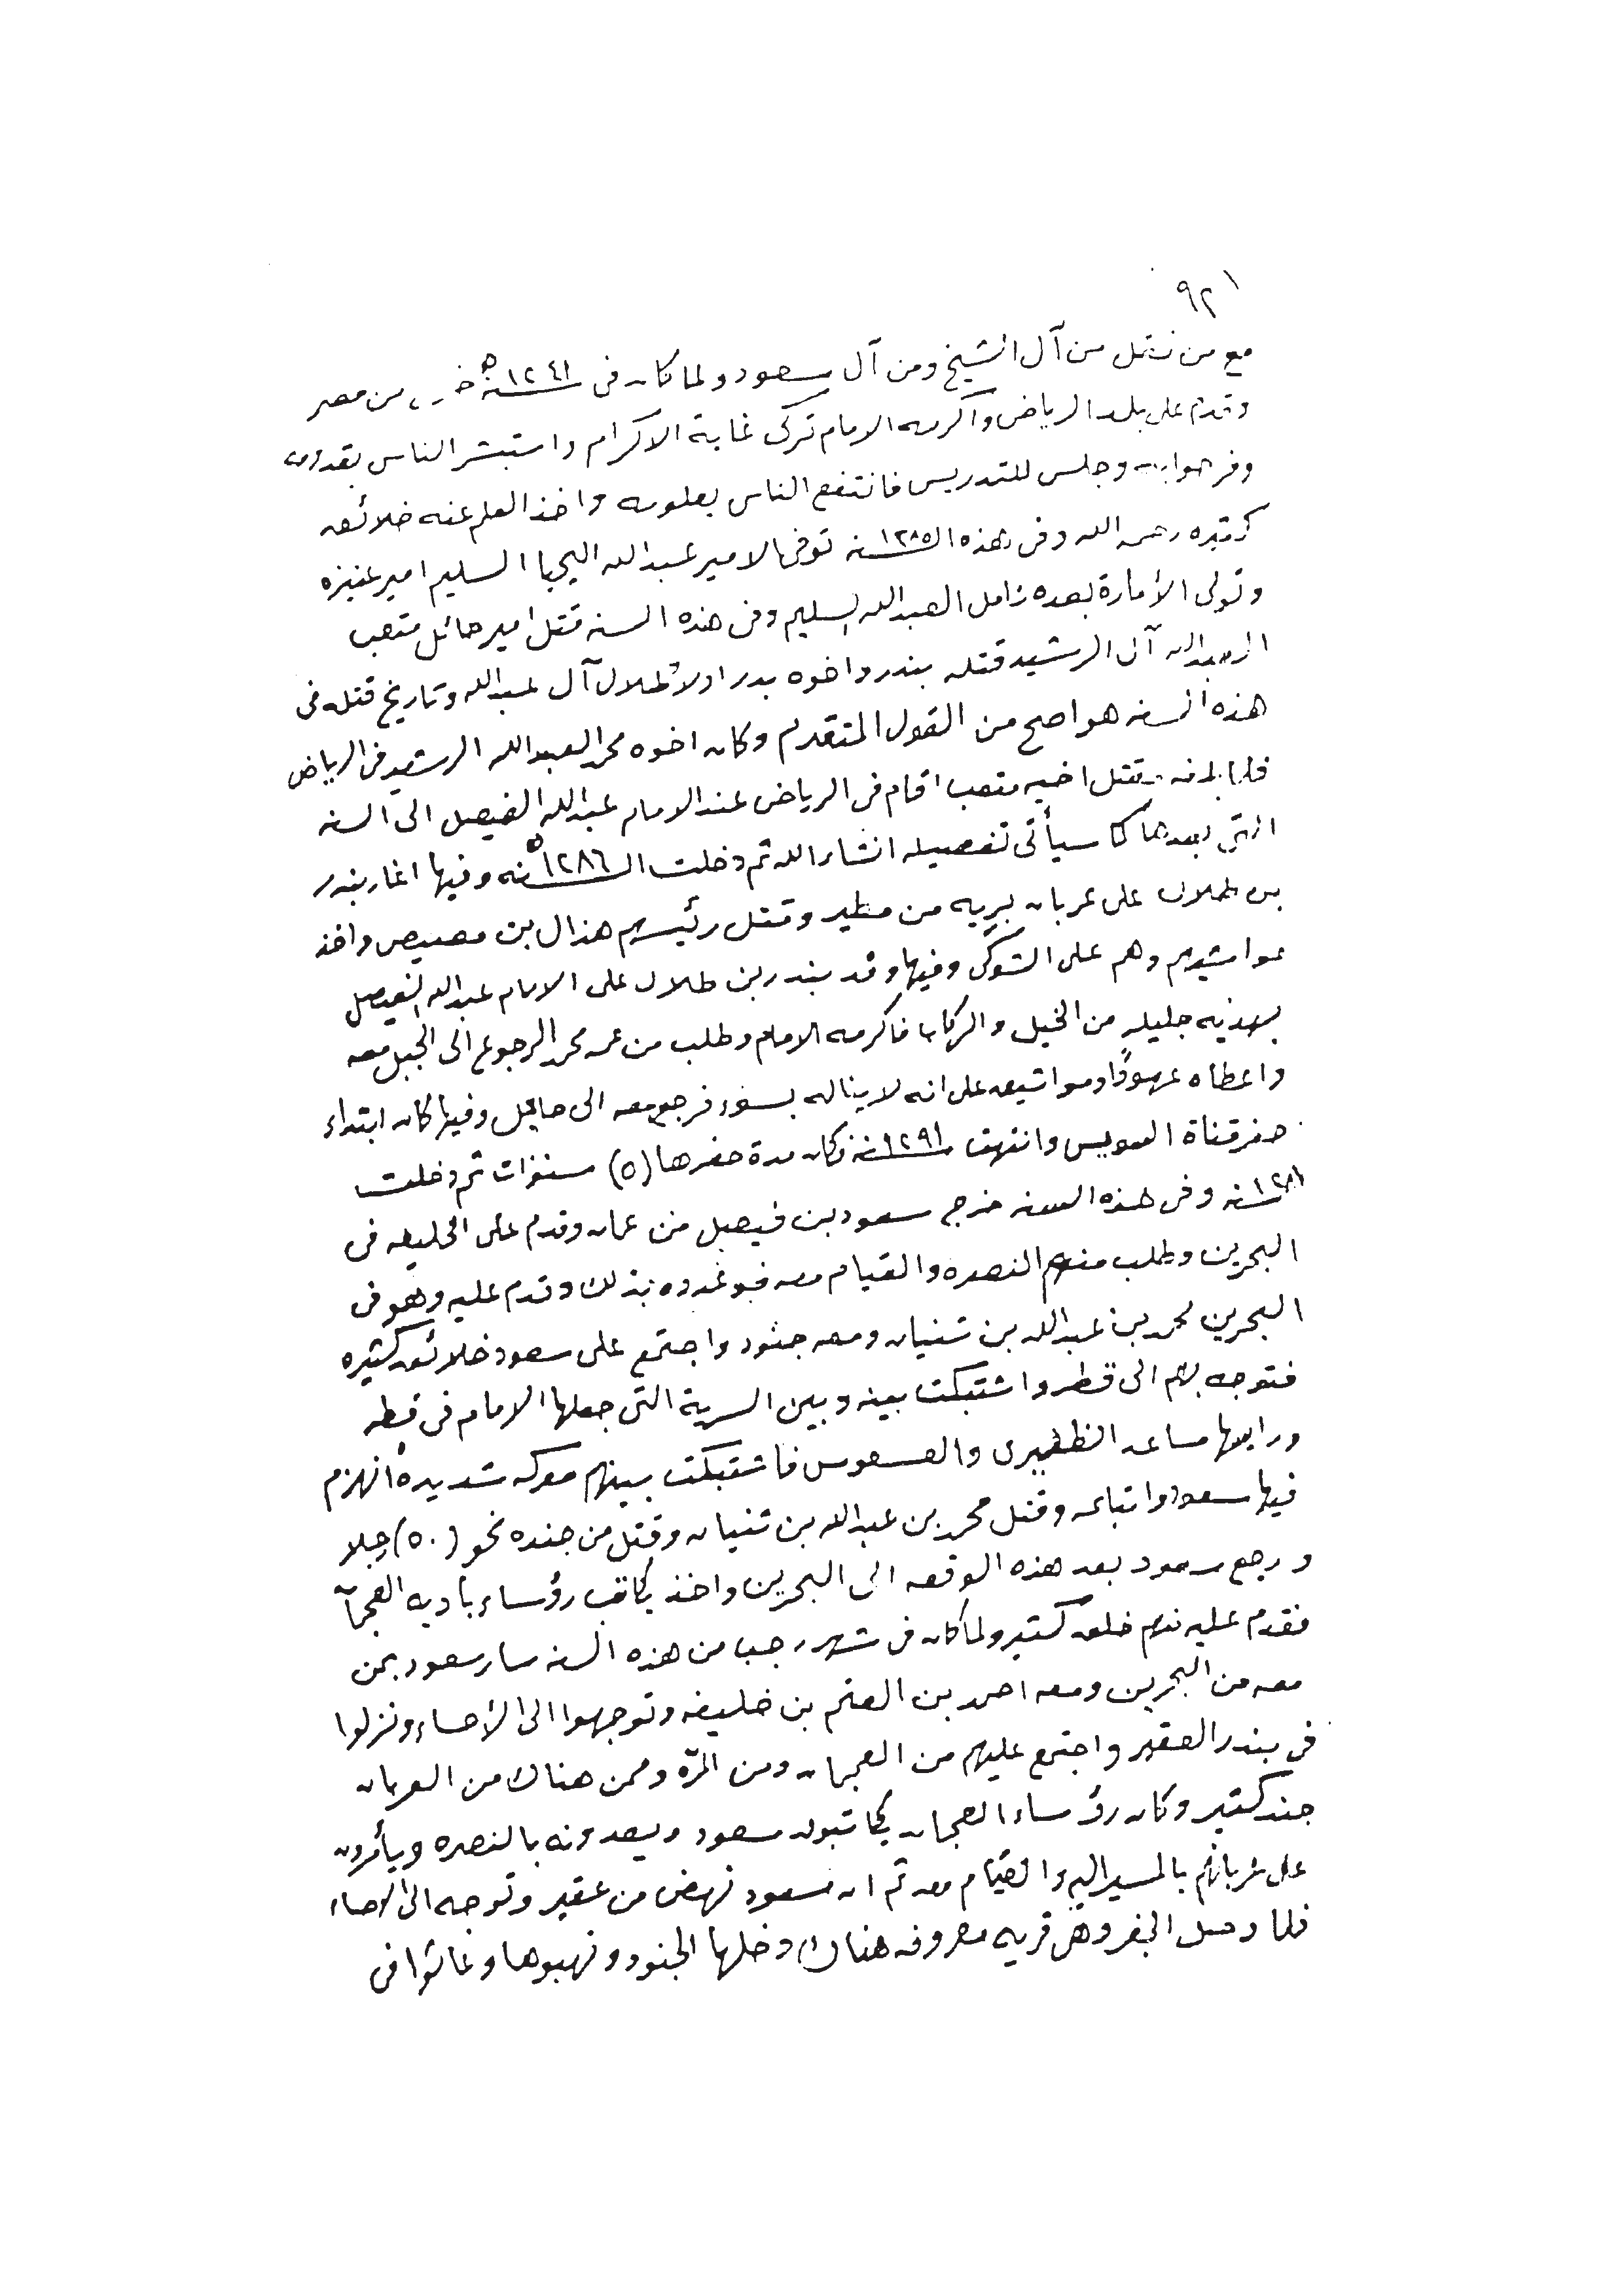 ١٩٢
مع من نقل من آل الشيخ ومن آل سعود ولما كان فى ١٢٤١ سنة هـ خرج من مصر
وقدم على بلد الرياض واكرمه الامام تركى غاية الاكرام واستبشر الناس بقدومه
وفرحوا به وجلس للتدريس فانتفع الناس بعلومه واخذ العلم عنه خلائق
كثيره رحمه الله وفى هذه السنه ١٢٨٥ توفى الامير عبد الله اليحيا السليم امير عنيزه
وتولى الأمارة بعده زامل العبد الله السليم وفى هذه السنه قتل امير حائل متعب
العبدالله آل الرشيد قتله بندر واخوه بدر اولاد طلال آل عبدالله وتاريخ قتله فى
هذه السنه هو اصح من القول المتقدم وكان اخوه محمد العبد الله الرشيد فى الرياض
فلما بلغه قتل اخيه متعب اقام فى الرياض عند الامام عبدالله الفيصل الى السنه
التى بعدها كما سيأتى تفصيله انشاء الله ثم دخلت السنه ١٢٨٦ هـ وفيها اغار بندر
بن طلال على عربان بريه من مطير وقتل رئيسهم هذال بن بصيص واخذ
مواشيهم وهم على الشوكى وفيها وفد بندر بن طلال على الامام عبدالله الفيصل
بهديه جليله من الخيل والركاب فاكرمه الامام وطلب من عمه محمد الرجوع الى الجبل معه
واعطاه عهودًا ومواثيق على انه لا يناله بسوء فرجع معه الى حايل وفيها كان ابتداء
حفر قناة السويس وانتهت ١٢٩١ سنة وكان مدة حفرها (٥) سنوات ثم دخلت
سنه وفى هذه السنه خرج سعود بن فيصل من عمان وقدم على الخليفه فى
البحرين وطلب منهم النصره والقيام معه فوعدوه بذلك وقدم عليه وهو فى
البحرين محمد بن عبدالله بن ثنيان ومعه جنود واجتمع على سعود خلائق كثيره
فتوجه بهم الى قطر واشتبكت بينه وبين السرية التى جعلها الامام فى قطر
ورايسها مساعد الظفيرى والعسعوس فاشتبكت بينهم معركه شديدة انهزم
فيها سعود واتباعه وقتل محمد بن عبدالله بن ثنيان وقتل من جنده نحو (٥٠) رجلا
ورجع سعود بعد هذه الوقعه الى البحرين واخذ يكاتب رؤساء بادية العجمان
فقدم عليه منهم خلق كثير ولما كان فى شهر رجب من هذه السنه سار سعود بمن
معه من البحرين ومعه احمد بن الغتم بن خليفه وتوجهوا الى الأحساء ونزلوا
فى بندر العقير واجتمع عليهم من العجمان ومن المرّه وممن هناك من العربان
جند كثير وكان رؤساء العجمان يكاتبون سعود ويعدونه بالنصره ويأمرون
على عربانهم بالمسير اليه والقيام معه ثم ان سعود نهض من عقير وتوجه الى الاحساء
فلما وصل الجفر وهى قريه معروفه هناك دخلها الجنود ونهبوها وعاثوا فى